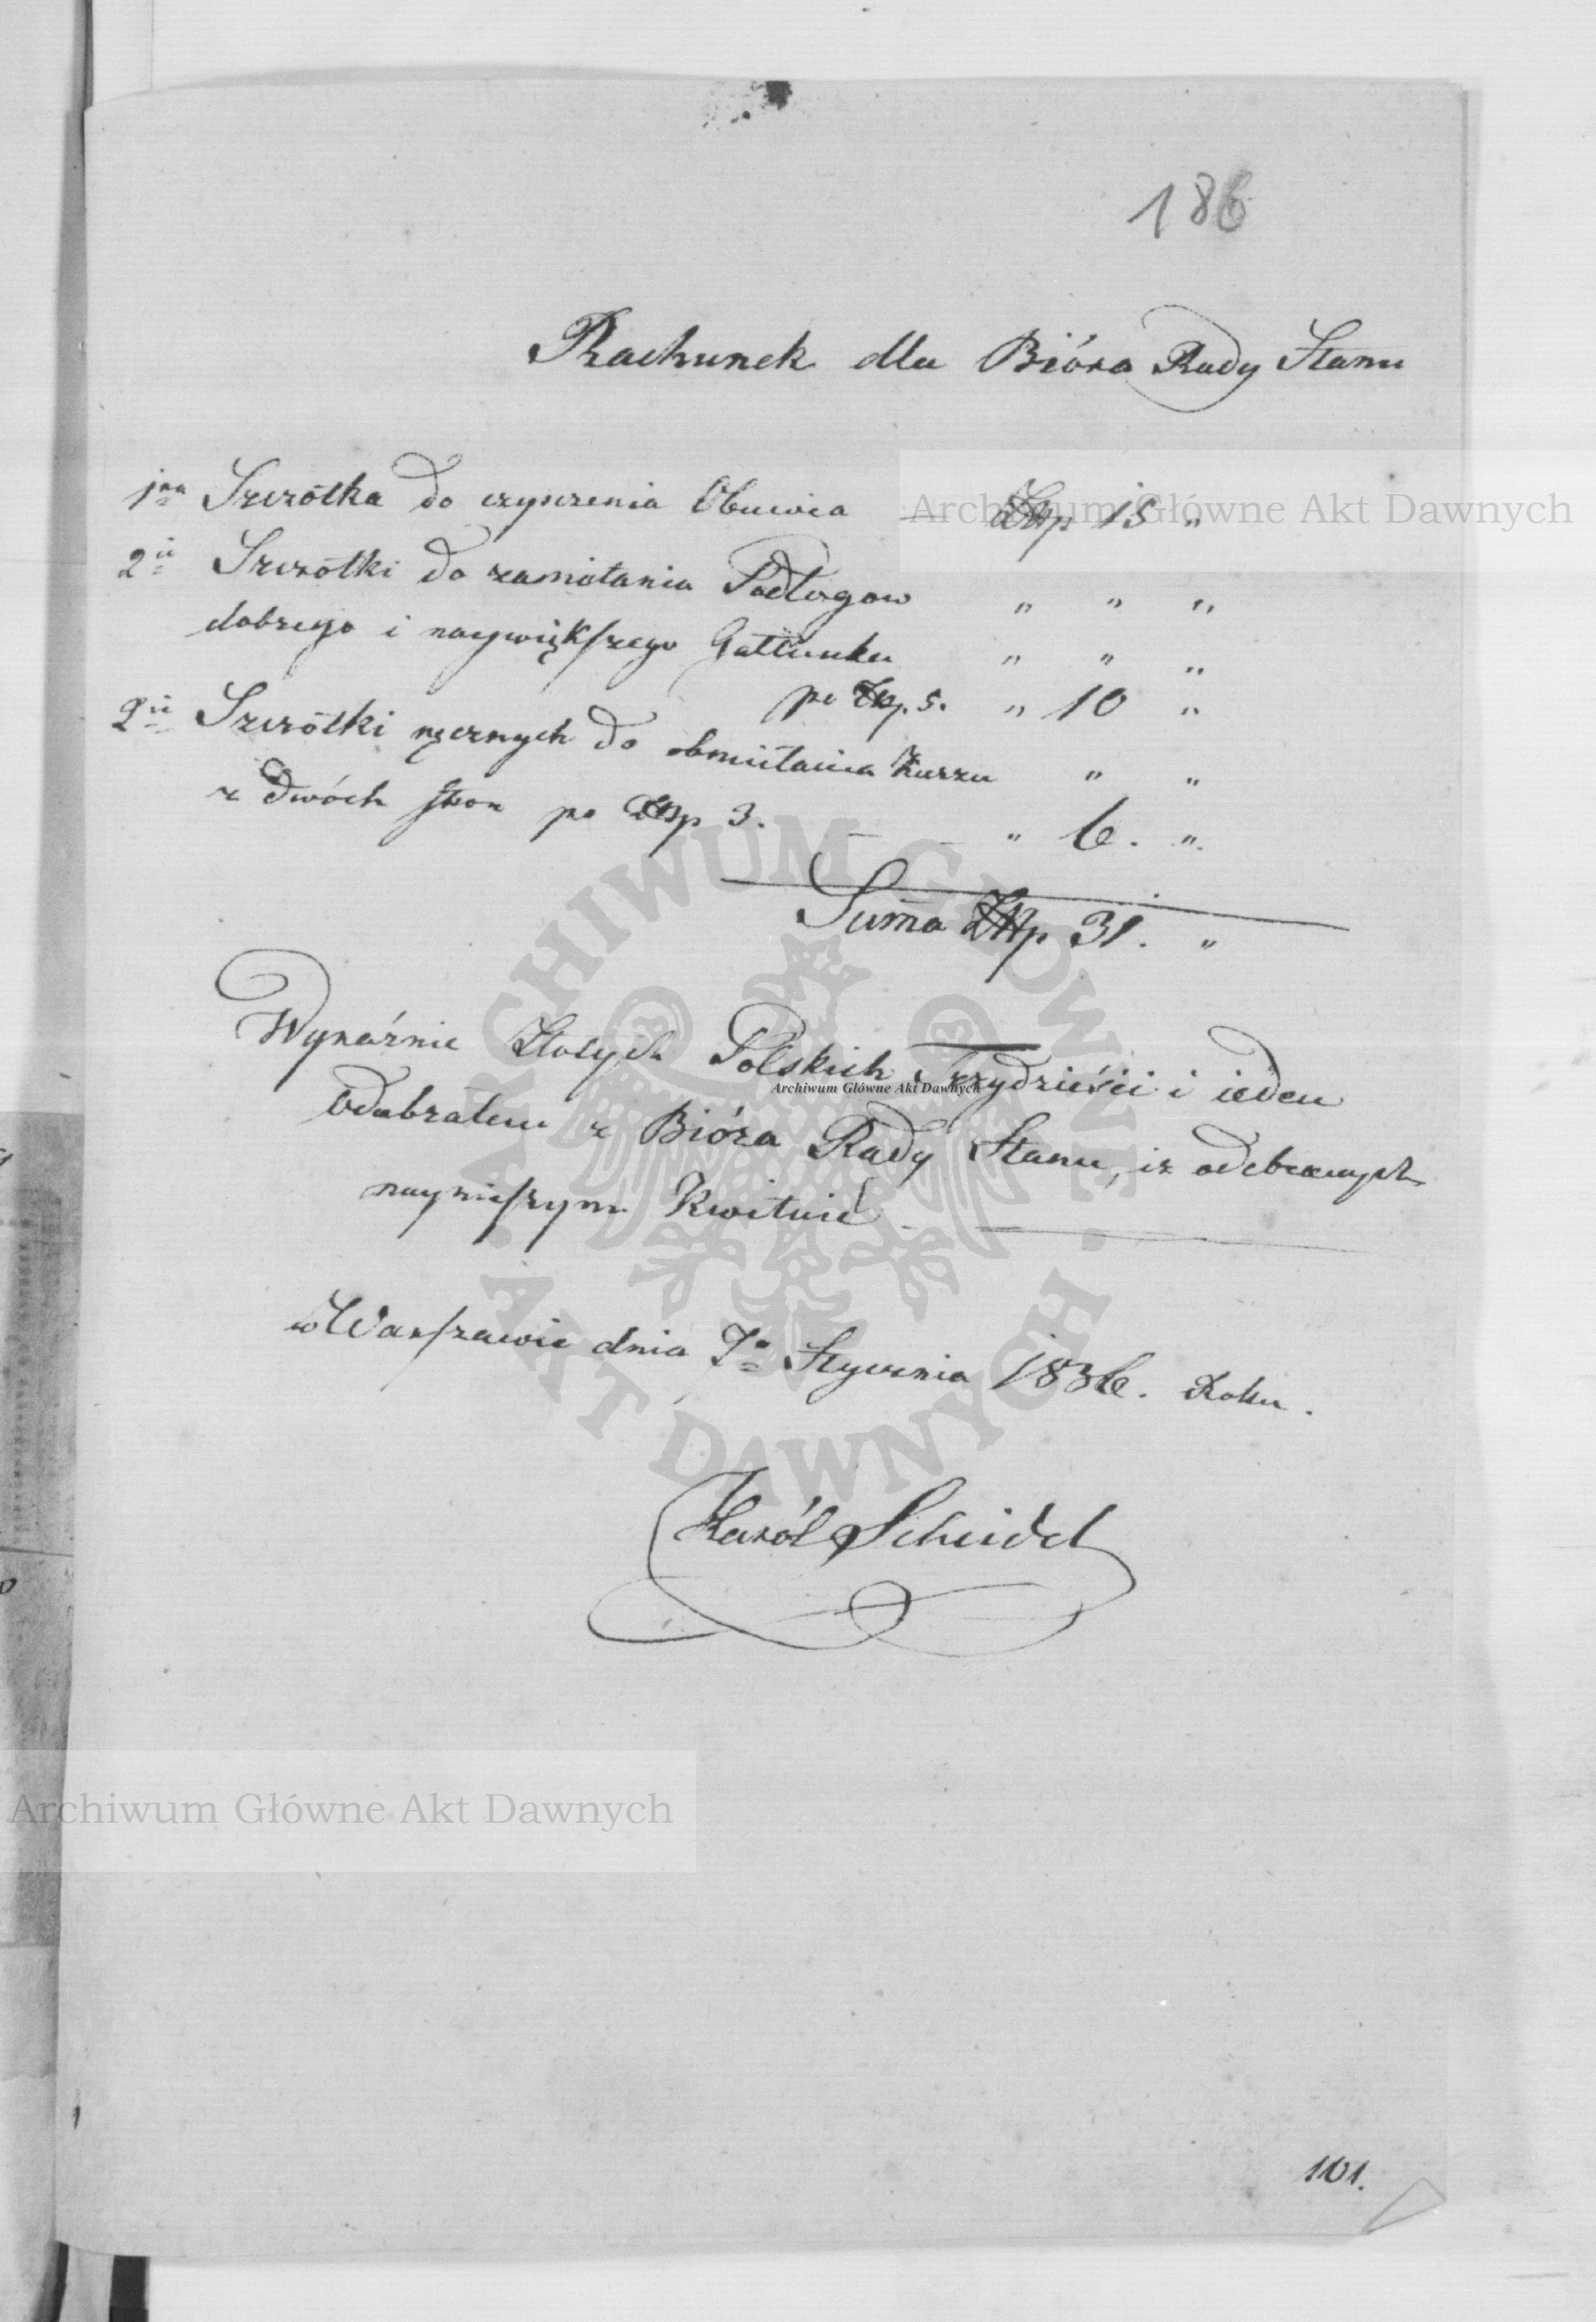 186
Rachunek dla Bióra Rady Stanu
1na Szczótka do czyszczenia Obuwia — Złp 15 "
2ie Szczotki do zamiatania Podłogow " " "
dobrego i naywiększego Gattunku " " "
po Złp. 5. " 10 "
2ie Szczótki ręcznych do obmiatania Kurzu " "
z dwóch stron po Złp 3. — " 6. "
Suma Złp 31. "
Wyraźnie Złotych Polskich Trzydzieści i ieden
Odebrałem z Bióra Rady Stanu, iż odebranych
nayniższym Kwituię
w Warszawie dnia 7o Stycznia 1836. Roku.
Karól Scheidel
101.
Archiwum Główne Akt Dawnych
ARCHIWUM GŁÓWNE AKT DAWNYCH
Archiwum Główne Akt Dawnych
Archiwum Główne Akt Dawnych